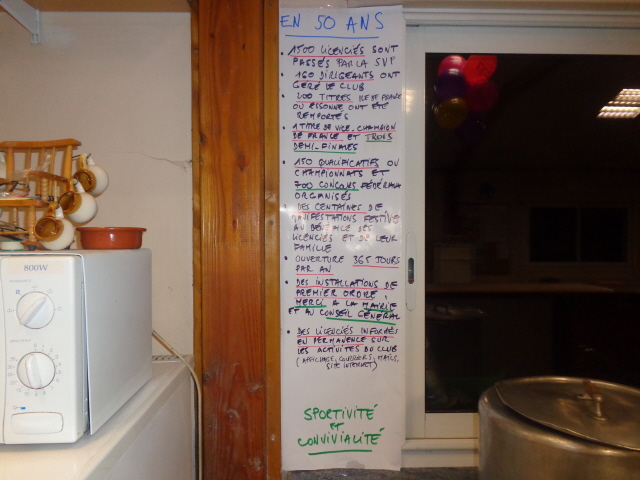 EN 50 ANS
• 1500 LICENCIÉS SONT
PASSÉS PAR LA SVP
• 160 DIRIGEANTS ONT
GÉRÉ LE CLUB
• 200 TITRES ILE DE FRANCE
OU ESSONNE ONT ÉTÉ
REMPORTÉS
• 1 TITRE DE VICE-CHAMPION
DE FRANCE ET TROIS
DEMI-FINALES
• 150 QUALIFICATIFS OU
CHAMPIONNATS ET
700 CONCOURS FÉDÉRAUX
ORGANISÉS
DES CENTAINES DE
MANIFESTATIONS FESTIVES
AU BÉNÉFICE DES
LICENCIÉS ET DE LEUR
FAMILLE
• OUVERTURE 365 JOURS
PAR AN
• DES INSTALLATIONS DE
PREMIER ORDRE,
MERCI À LA MAIRIE
ET AU CONSEIL GÉNÉRAL
• DES LICENCIÉS INFORMÉS
EN PERMANENCE SUR
LES ACTIVITÉS DU CLUB
(AFFICHAGE, COURRIERS, MAILS,
SITE INTERNET)
SPORTIVITÉ
ET
CONVIVIALITÉ
800W